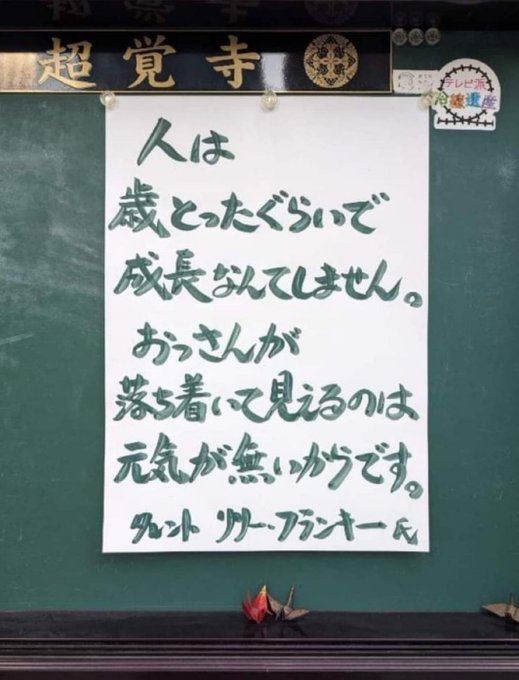 超覚寺
テレビ派
冷線遺産
人は
歳とったぐらいで
成長なんてしません。
おっさんが
落ち着いて見えるのは
元気が無いからです。
タレント リリー・フランキー氏